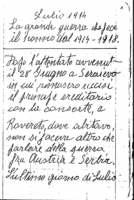 Luglio 1914
La grande guerra che fece
il nonno dal 1914-1918.
Dopo l'attentato avvenuto
il 28 Giugno a Seraievo
in cui vennero uccisi
il principe ereditario
con la consorte, a
Rovereto, dove abitavo,
non si faceva altro che
parlare della guerra
fra Austria e Serbia.
L'ultimo giorno di Luglio